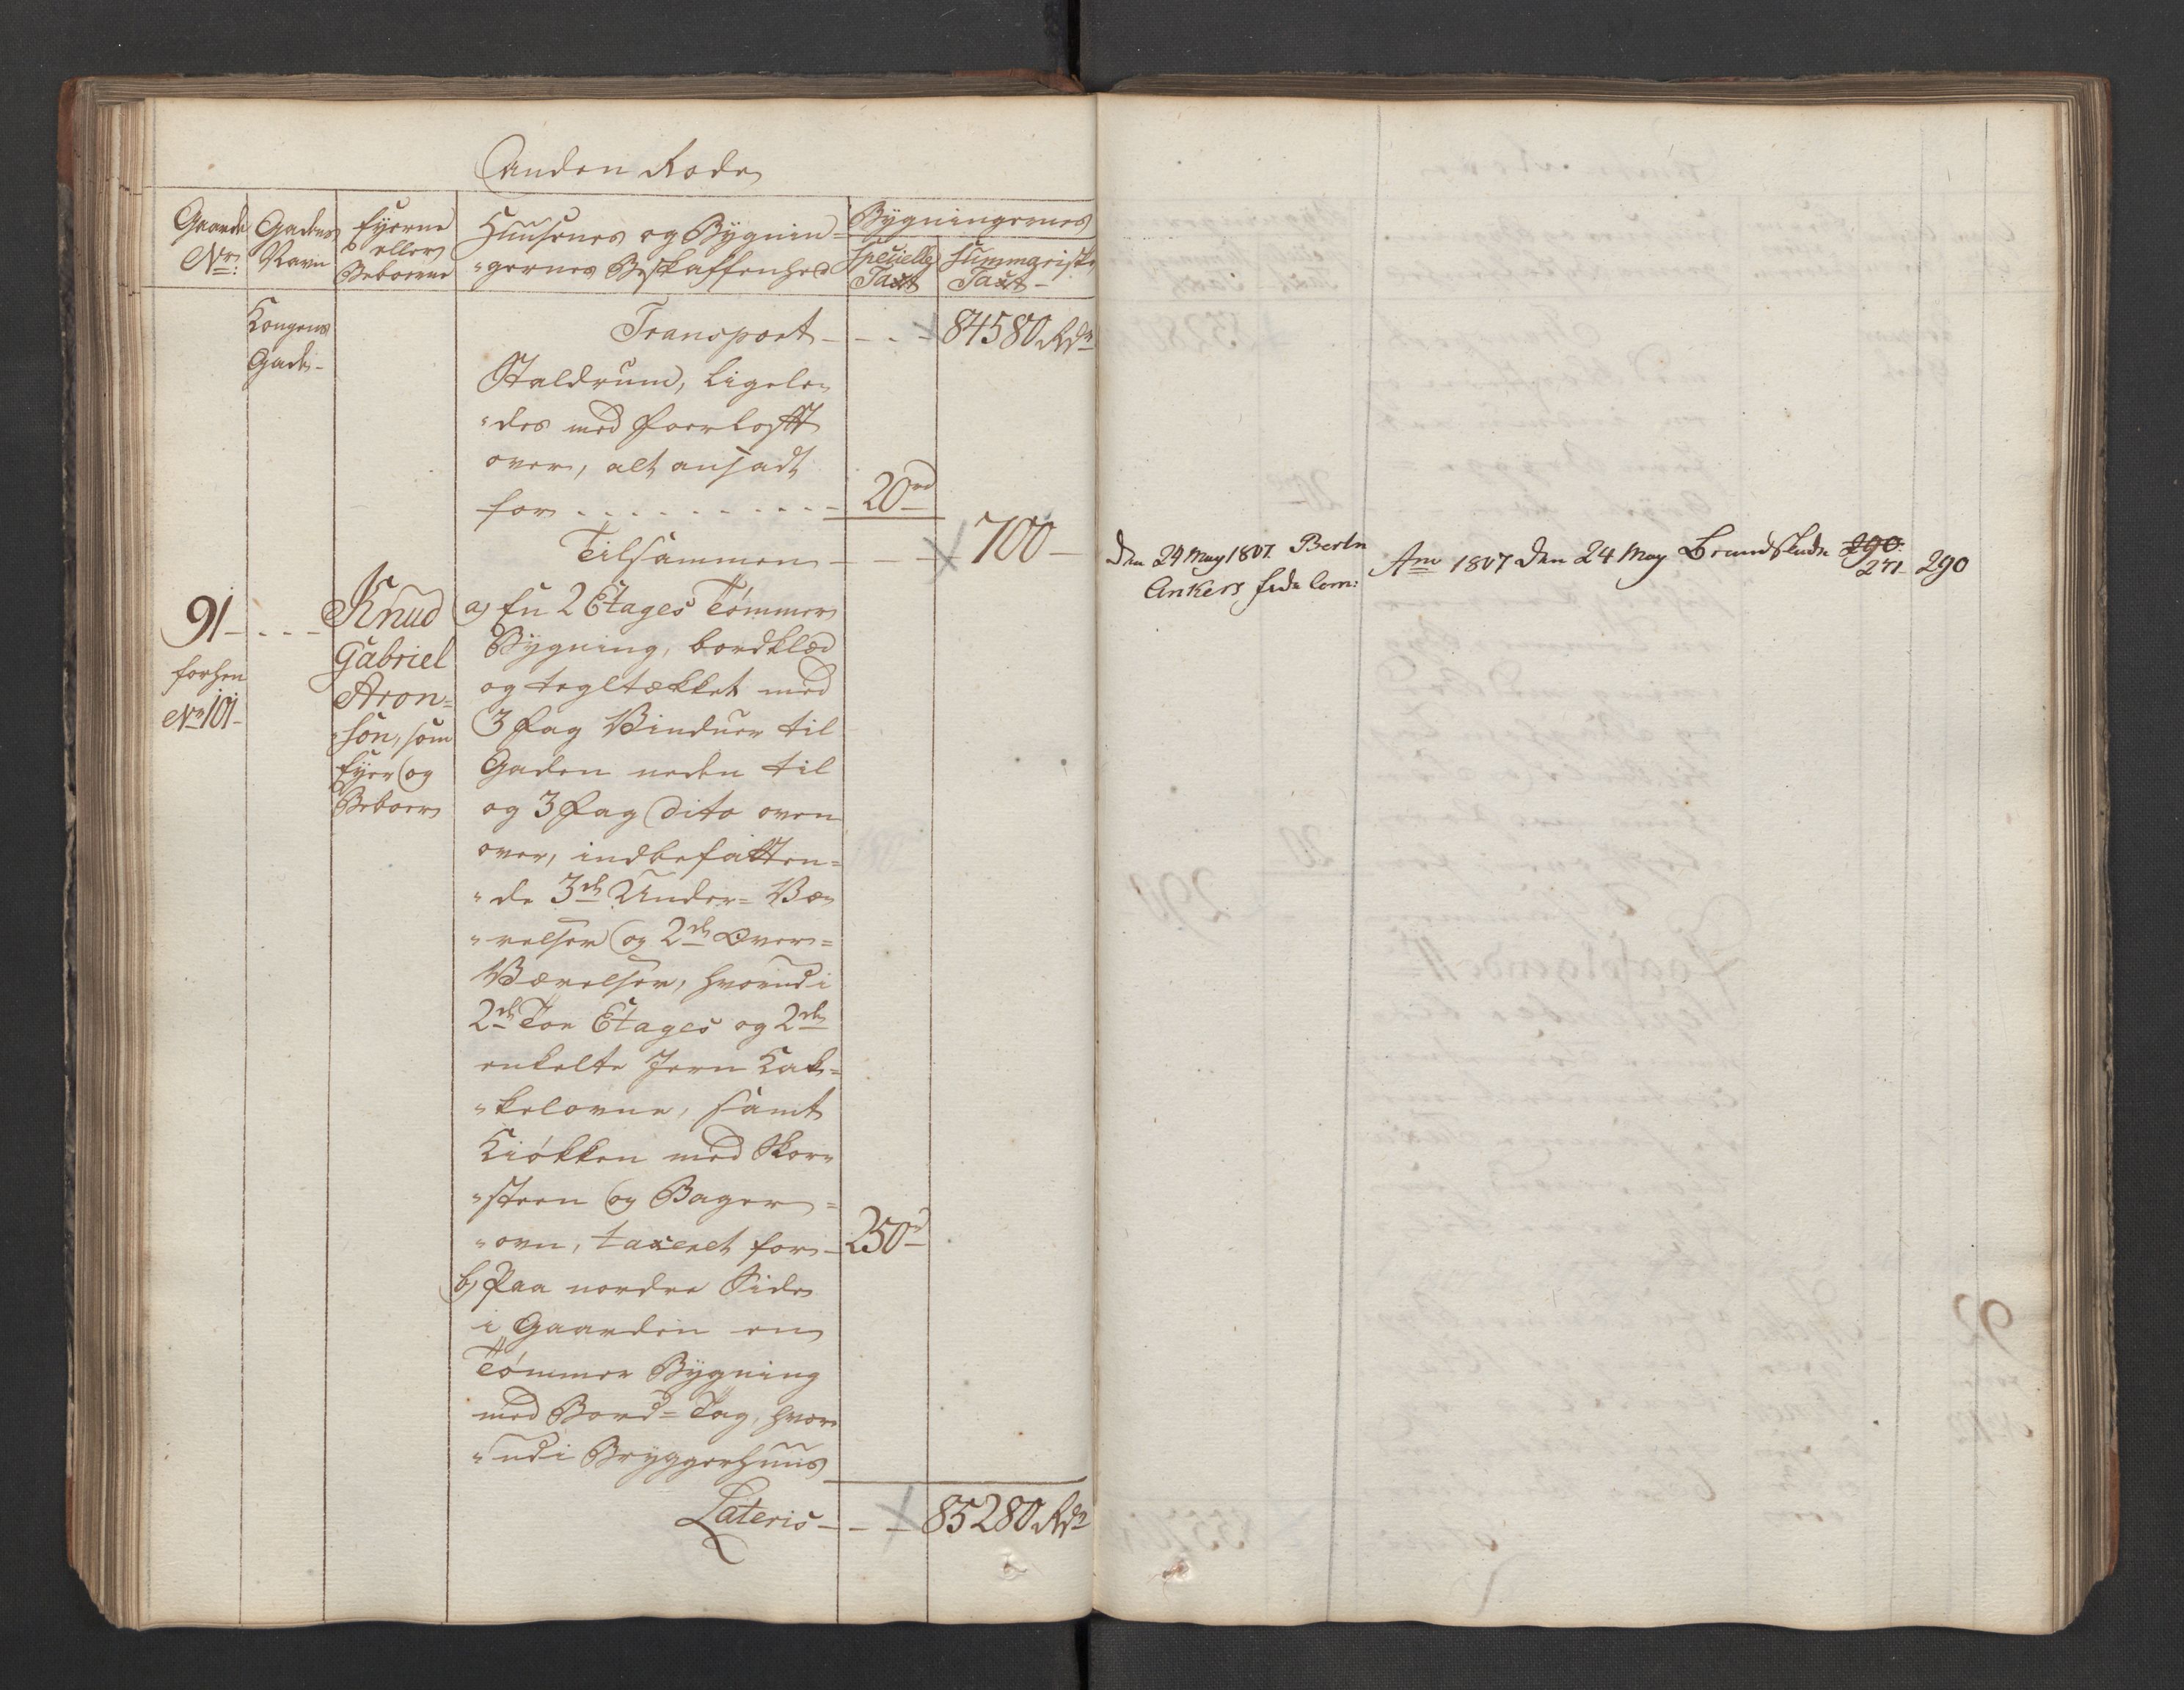 Anden Rode
Gaarde No:
Gadens Navn
Eyerne eller Beboerne
Huusenes og Bygnin=
"gernes Beskaffenhed
Bygningernes
Specielle Taxt
Summariske Taxt
Kongens
Gade
Transport - - - 84580 Rdr
Staldrum, ligele=
"des med Foerlofft
over, alt ansadt
for - - - - 20rd
Tilsammen - - - 700 -
91 - - - -
forhen
No 101
Knud
Gabriel
Aron=
"son, som
Eyer og
Beboer
a) En 2 Etages Tømmer
Bygning, bordklæd
og tegltækket med
3 Fag Vinduer til
Gaden neden til
og 3 Fag dito oven
over, indbefatten=
"de 3de Under= Væ=
"relser og 2de Over=
Værelser, hvorudi
2de Toe Etages og 2de
enkelte Jern Kak=
"kelovne, samt
Kiøkken med Skor=
"steen og Bager=
"ovn, taxeret for - 250rd
b) Paa nordre Side
i Gaarden en
Tømmer Bygning
med Bord= Tag, hvor=
"udi Bryggerhuus
Lateris - - - 85280 Rdr
Den 24 May 1807. Bertn
Ankers
Ano 1807 den 24 May Brandskade 290
271 290